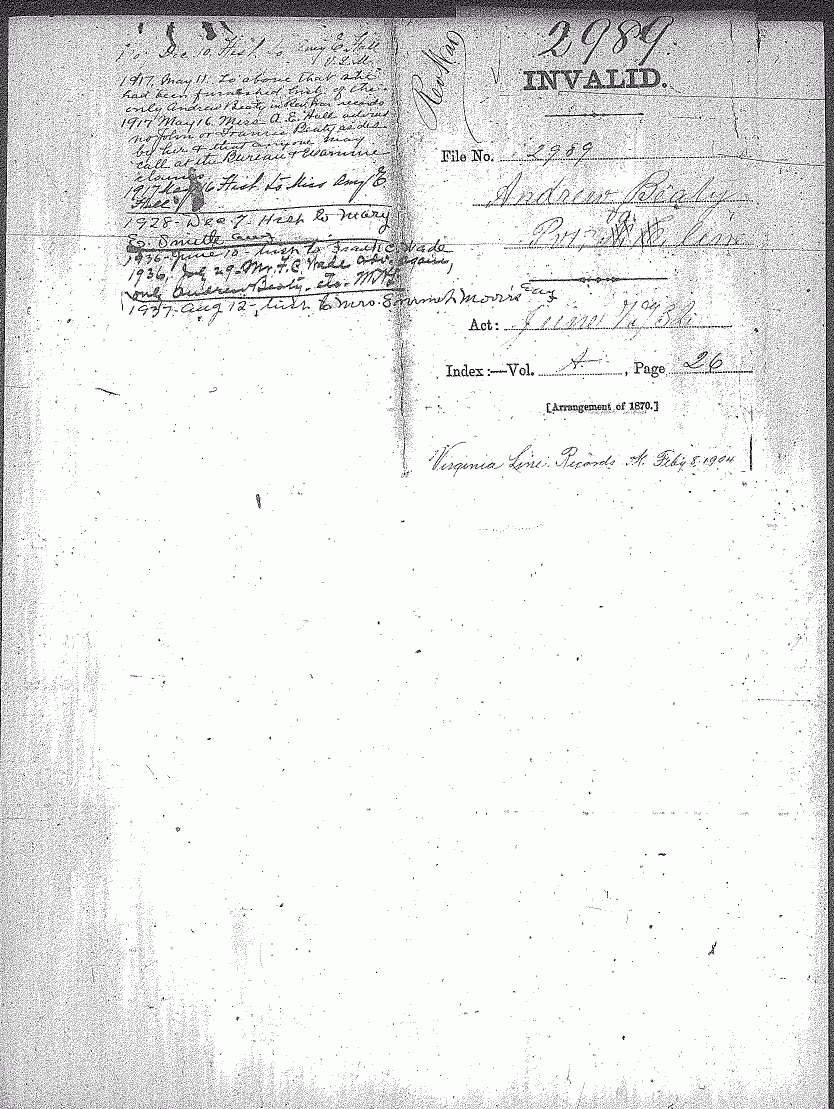 Dec 10. Hist to Amy E. Hall
1917 May 11. To above that she
had been furnished hist. of the
only Andrew Beaty in Rev. War records
1917 May 16 Miss A. E. Hall advised
no John or Francis Beaty as des.
by her & that anyone may
call at the Bureau & examine
claims
1917 6 Hist to Miss Amy E.
Hall
1928-Dec. 7. Hist to Mary
E.
1936-June 10 hist to Frank C. Wade
1936, 29-Mr. F. C. Wade adv. again,
only Andrew Beaty- etc-
1937-Aug 12-, hist to Mrs. Emmet Moores
Rev War
2989
INVALID.
File No. 2989
Andrew Beaty
Va.
Pvt. line
Act: June 7, '32
Index:—Vol. A , Page 26
[Arrangement of 1870.]
Virginia Line: Records Feb'y 8, 1904